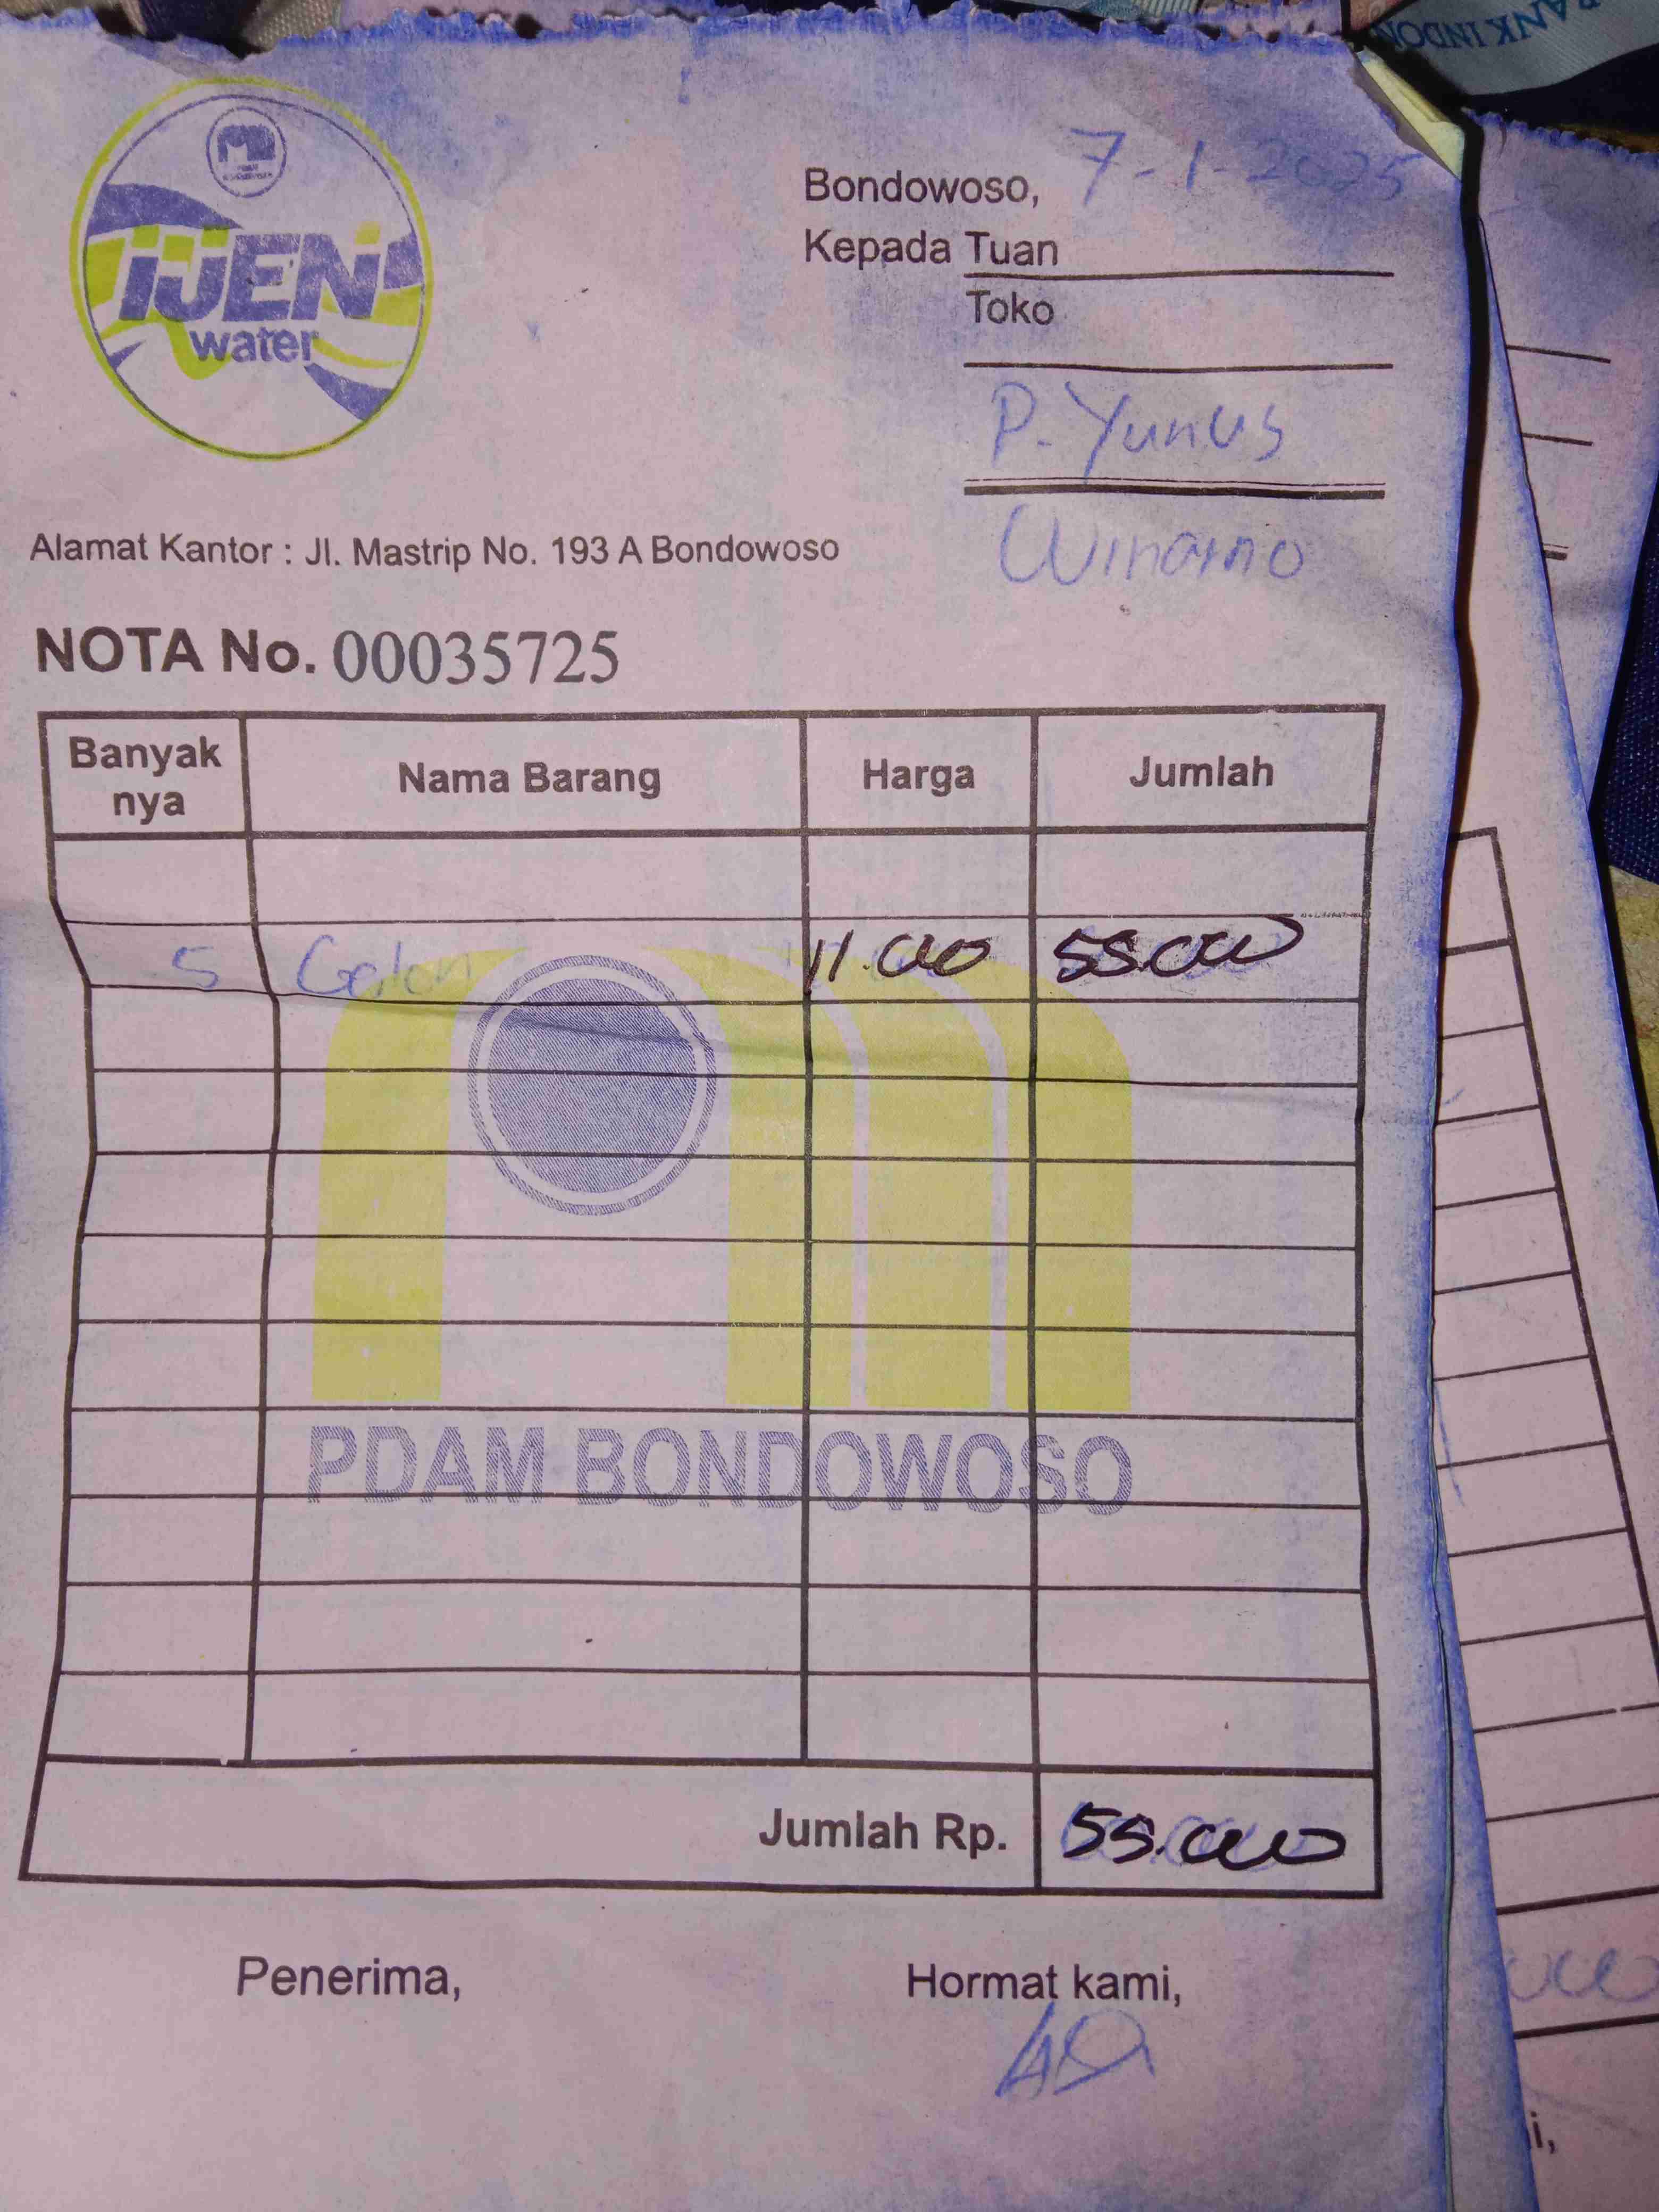 BANK INDON
iJEN
water
Bondowoso, 7-1-2025
Kepada Tuan
Toko
P. Yunus
Winarno
Alamat Kantor : Jl. Mastrip No. 193 A Bondowoso
NOTA No. 00035725
Banyak nya Nama Barang Harga Jumlah
5 Galon 11.000 55.000
PDAM BONDOWOSO
Jumlah Rp. 55.000
Penerima, Hormat kami,